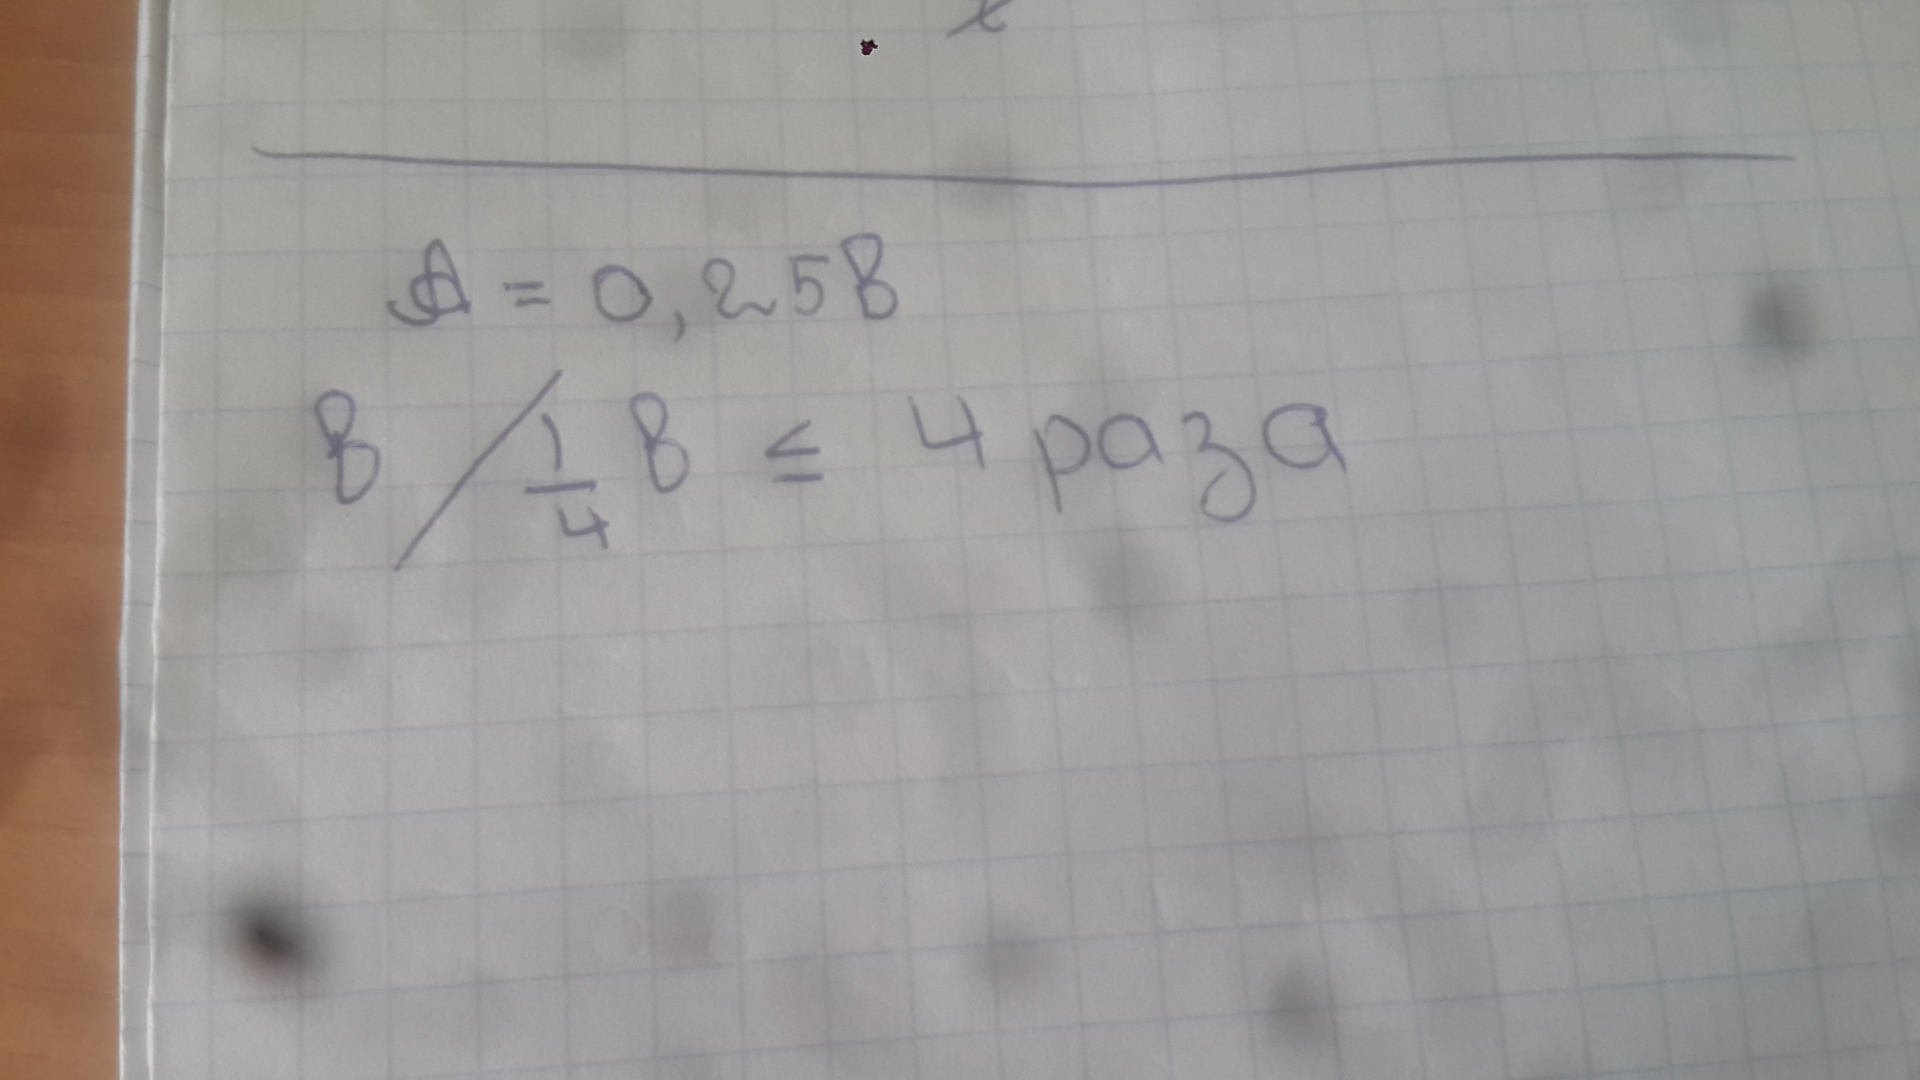 A = 0,25B
B / 1/4 B ≤ 4 раза